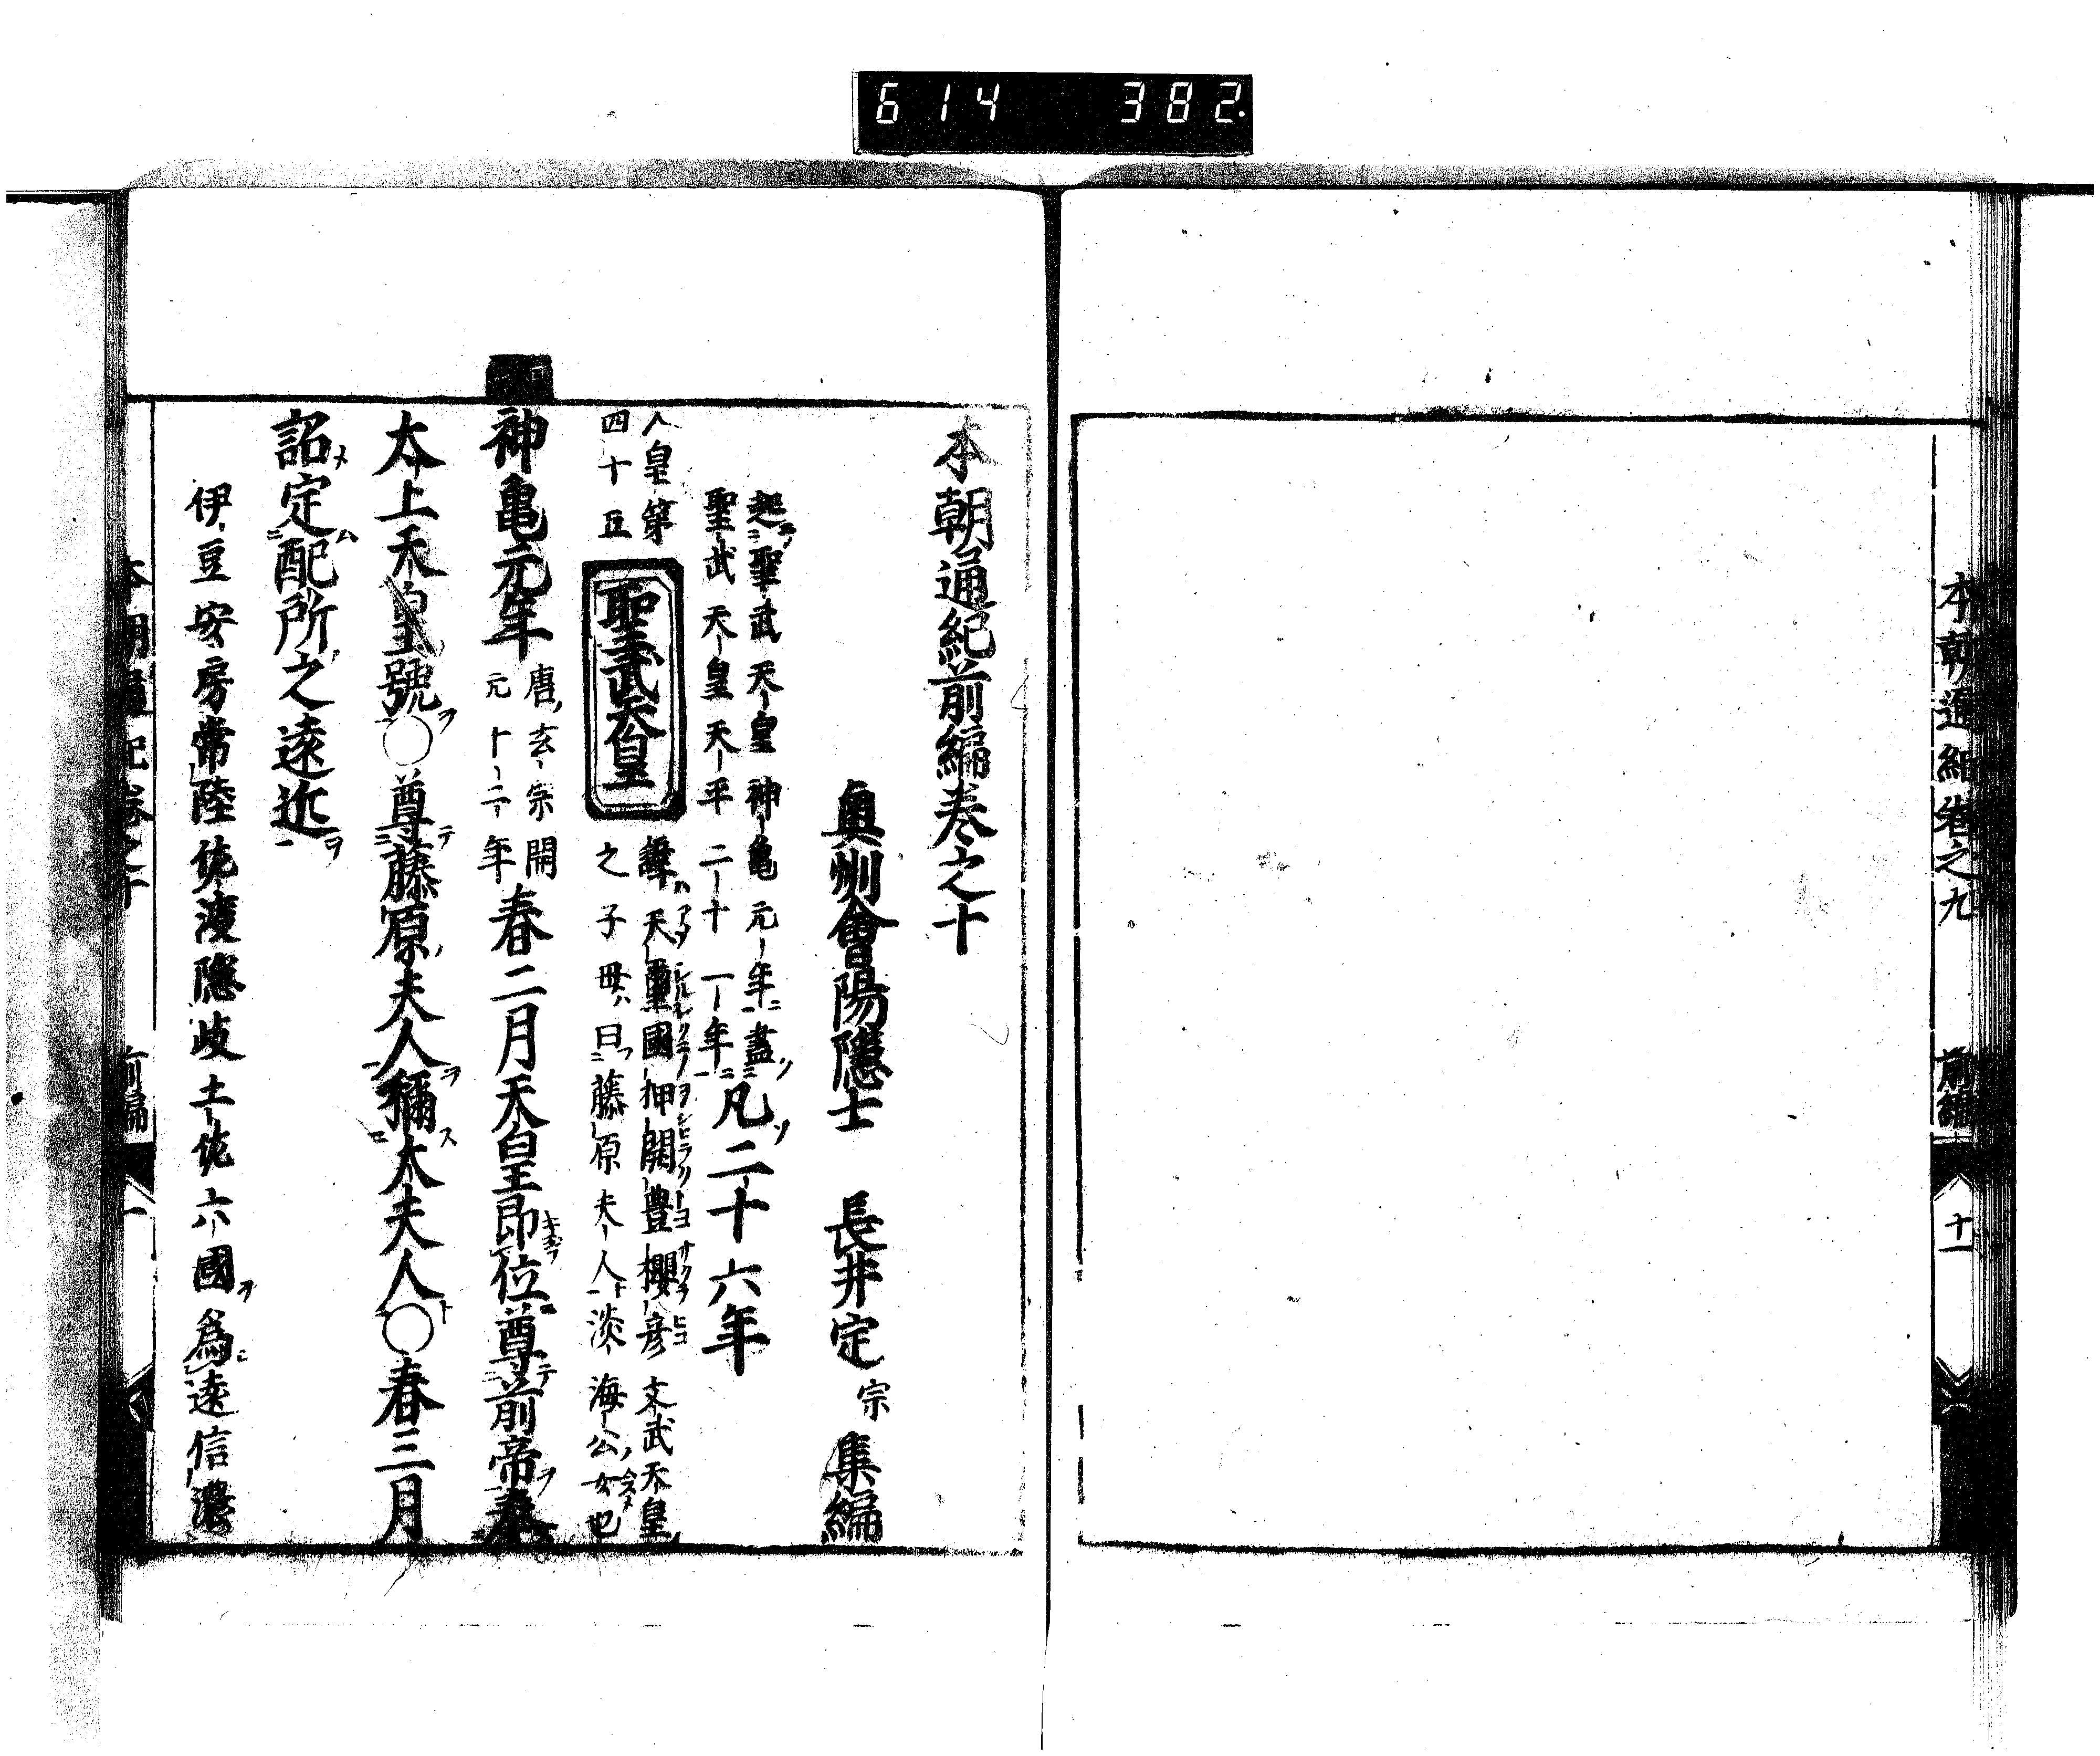 614 382.
本朝通紀卷之九 前編 十一
本朝通紀前編卷之十
奧州會陽隱士 長井定宗 集編
起聖武天皇神亀元年盡
聖武天皇天平二十一年凡二十六年
人皇第
四十五
聖武天皇
諱天璽國押開豊櫻彦文武天皇
之子母曰藤原夫人淡海公女也
神亀元年唐玄宗開
元十二年春二月天皇即位尊前帝奉
太上天皇號○尊藤原夫人稱太夫人○春三月
詔定配所之遠近
伊豆安房常陸佐渡隱岐土佐六國爲遠信濃
本朝通紀卷之十 前編 一